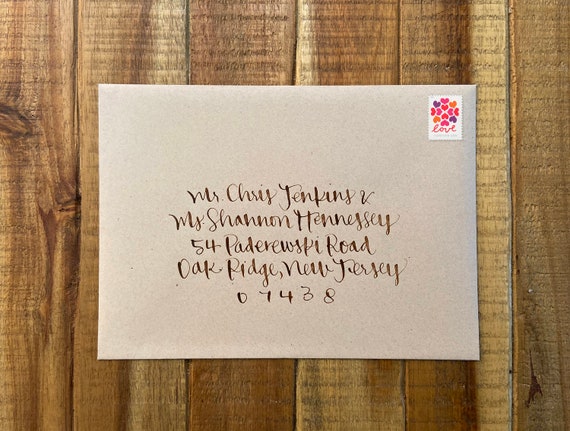 love
Mr. Chris Jenkins &
Ms. Shannon Hennessey
54 Paderewski Road
Oak Ridge, New Jersey
07438